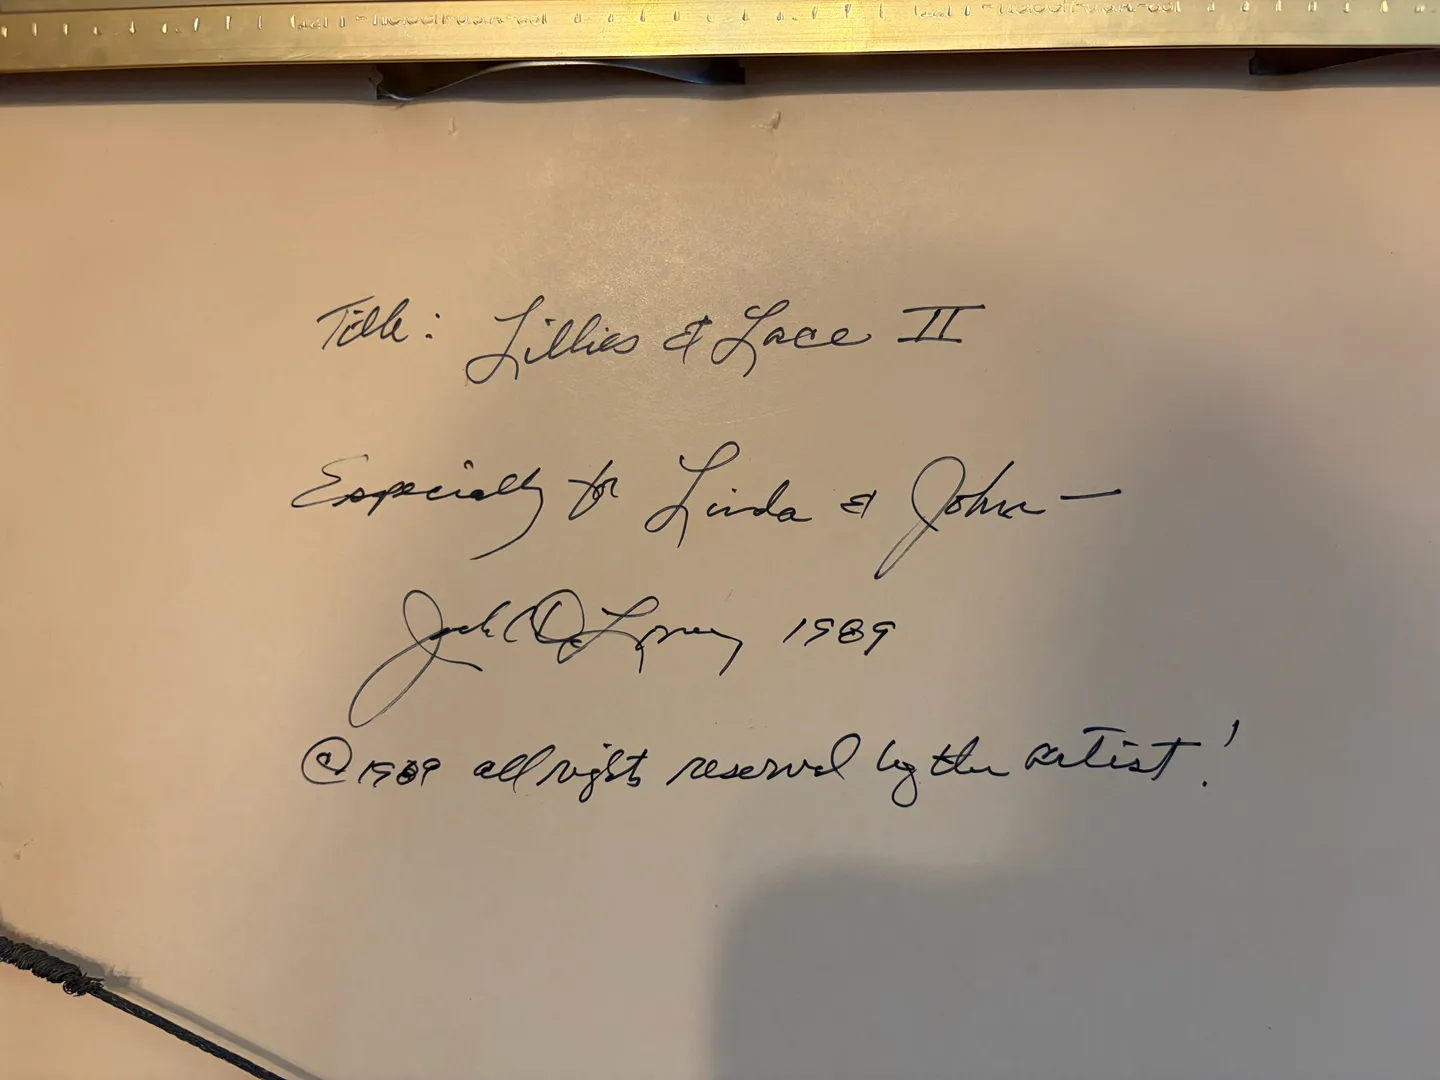 Title: Lillies & Lace II
Especially for Linda & John —
Jack C DeLoney 1989
© 1989 all rights reserved by the artist!